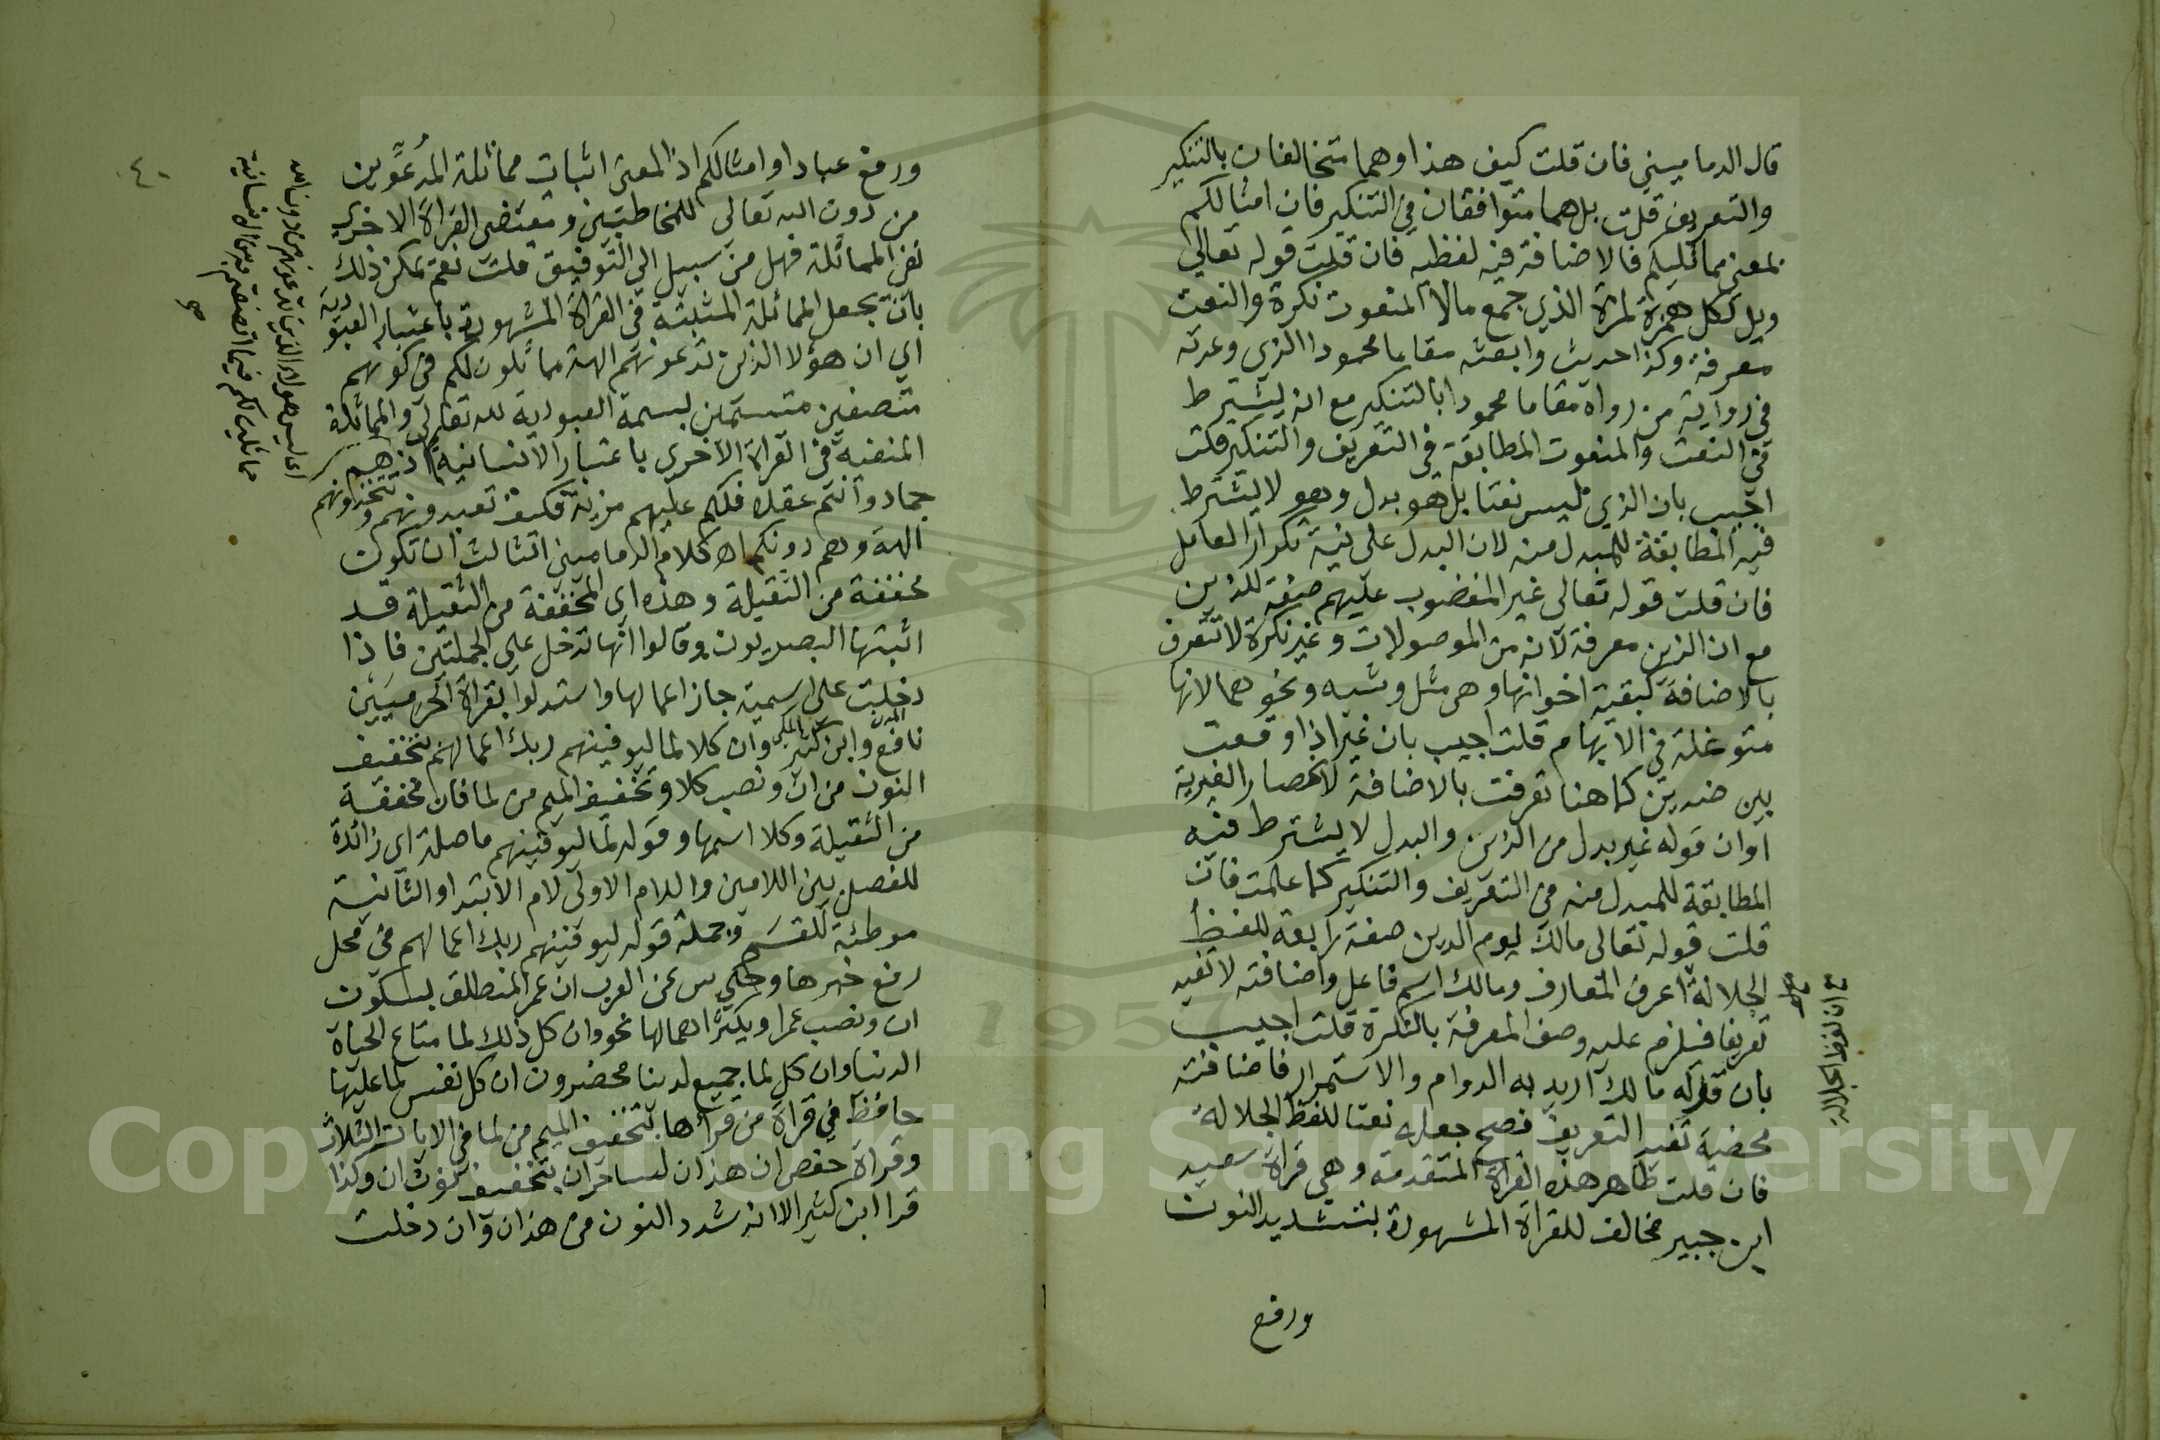 قال الدماميني فان قلت كيف هذا وهما متخالفان بالتنكير
والتعريف قلت بل هما متوافقان في التنكير فان امثالكم
بمعنى مماثليكم فالاضافة فيه لفظيه فان قلت قوله تعالى
ويل لكل همزة لمزة الذي جمع مالا المنعوت نكرة والنعت
معرفة وكذا حديث وابعثه مقاما محمودا الذي وعدته
في رواية من رواه مقاما محمودا بالتنكير مع انه يشترط
في النعت والمنعوت المطابقة في التعريف والتنكير قلت
اجيب بان الذي ليس نعتا بل هو بدل وهو لا يشترط
فيه المطابقة للمبدل منه لان البدل على نية تكرار العامل
فان قلت قوله تعالى غير المغضوب عليهم صفة للذين
مع ان الذين معرفة لانه من الموصولات وغير نكرة لا تتعرف
بالاضافة كبقية اخواتها وهي مثل وشبه ونحوهما لانها
متوغلة في الابهام قلت اجيب بان غير اذا وقعت
بين ضدين كما هنا تعرفت بالاضافة لانحصار الغيرية
او ان قوله غير بدل من الذين والبدل لا يشترط فيه
المطابقة للمبدل منه في التعريف والتنكير كما علمت فان
قلت قوله تعالى مالك يوم الدين صفة رابعة للفظ
الجلالة اعرف المعارف ومالك اسم فاعل واضافته لا تفيد
مع ان لفظ الجلالة
تعريفا فيلزم عليه وصف المعرفة بالنكرة قلت اجيب
بان قوله مالك اريد به الدوام والاستمرار فاضافته
محضية تفيد التعريف فصح جعله نعتا للفظ الجلالة
فان قلت ظاهر هذه القراة المتقدمة وهي قراة سعيد
ابن جبير مخالف للقراة المشهورة بتشديد النون
ورفع
٤٠
ورفع عباد او امثالكم اذ المعنى اثبات مماثلة المدعوين
من دون الله تعالى للمخاطبين ومقتضى القراة الاخرى
نفي المماثلة فهل من سبيل الى التوفيق قلت نعم يمكن ذلك
بان تجعل المماثلة المثبتة في القراة المشهورة باعتبار العبودية
اي ان هؤلا الذين تدعونهم الهة مماثلون لكم في كونهم
متصفين متسمين بسمة العبودية لله تعالى والمماثلة
المنفية في القراة الاخرى باعتبار الانسانية اذ هم
اي ليس هولاء الذين تدعونهم من دون الله
مماثلين لكم فيما اتصفتم به من الانسانية
صح
جماد وانتم عقلا فلكم عليهم مزية فكيف تعبدونهم وتتخذونهم
الهة وهم دونكم اه كلام الدماميني الثالث ان تكون
مخففة من الثقيلة وهذه اي المخففة من الثقيلة قد
اثبتها البصريون وقالوا انها تدخل على الجملتين فاذا
دخلت على اسمية جاز اعمالها واستدلوا بقراة الحرميين
نافع المدني وابن كثير المكي وان كلا لما ليوفينهم ربك اعمالهم بتخفيف
النون من ان ونصب كلا وتخفيف الميم من لما فان مخففة
من الثقيلة وكلا اسمها وقوله لما ليوفينهم ما صلة اي زائدة
للفصل بين اللامين واللام الاولى لام الابتدا والثانية
موطئة للقسم وجملة قوله ليوفينهم ربك اعمالهم في محل
رفع خبرها وحكي س عن العرب ان عمرا لمنطلق بسكون
ان ونصب عمرا ويكثر اهمالها نحو وان كل ذلك لما متاع الحياة
الدنيا وان كل لما جميع لدينا محضرون ان كل نفس لما عليها
حافظ في قراة من قراها بتخفيف الميم من لما في الايات الثلاث
وقراة حفص ان هذان لساحران بتخفيف نون ان وكذا
قرا ابن كثير الا انه شدد النون من هذان وان دخلت
1957
Copyright © King Saud University